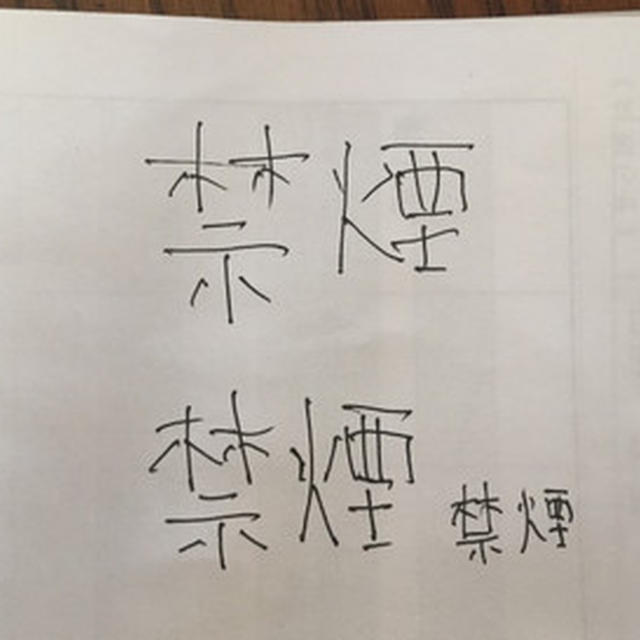 禁煙
禁煙 禁煙